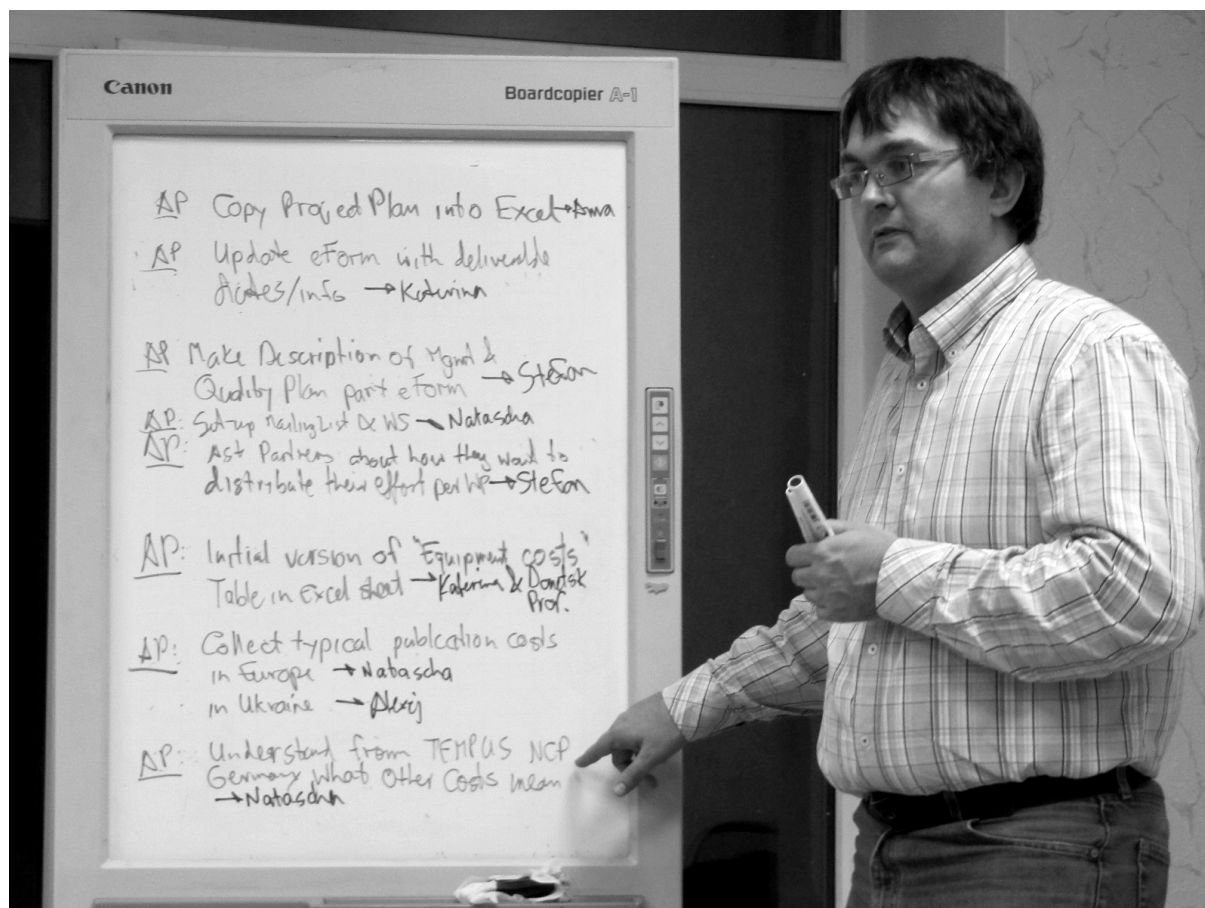 Canon
Boardcopier A-1
AP Copy Project Plan into Excel → Anna
AP Update eForm with deliverable
dates/info → Katerina
AP Make Description of Mgmt &
Quality Plan part eForm → Stefan
AP: Set-up Mailing List & WS → Natascha
AP: Ask Partners about how they want to
distribute their effort per WP → Stefan
AP: Initial version of "Equipment costs"
Table in Excel sheet → Katerina & Donetsk
Prof.
AP: Collect typical publication costs
in Europe → Natascha
in Ukraine → Alexij
AP: Understand from TEMPUS NCP
Germany what Other Costs mean
→ Natascha